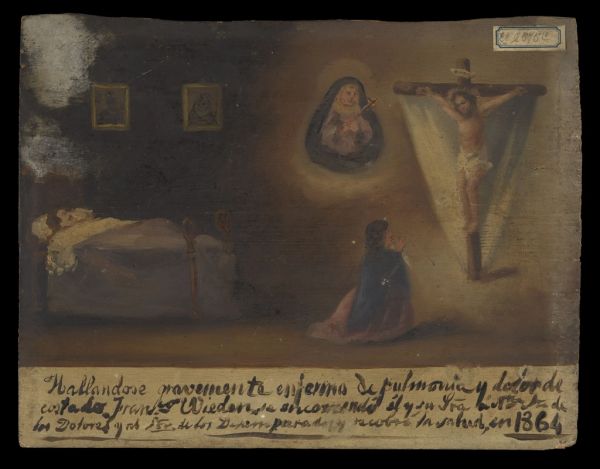 Hallandose gravemente enfermo de pulmonia y dolor de
costado, Fran.co Wieden, se encomendó él y su Sra. a Ntra. Sra. de
los Dolores y al Sor. de los Desemparados y recobró la salud, en 1864